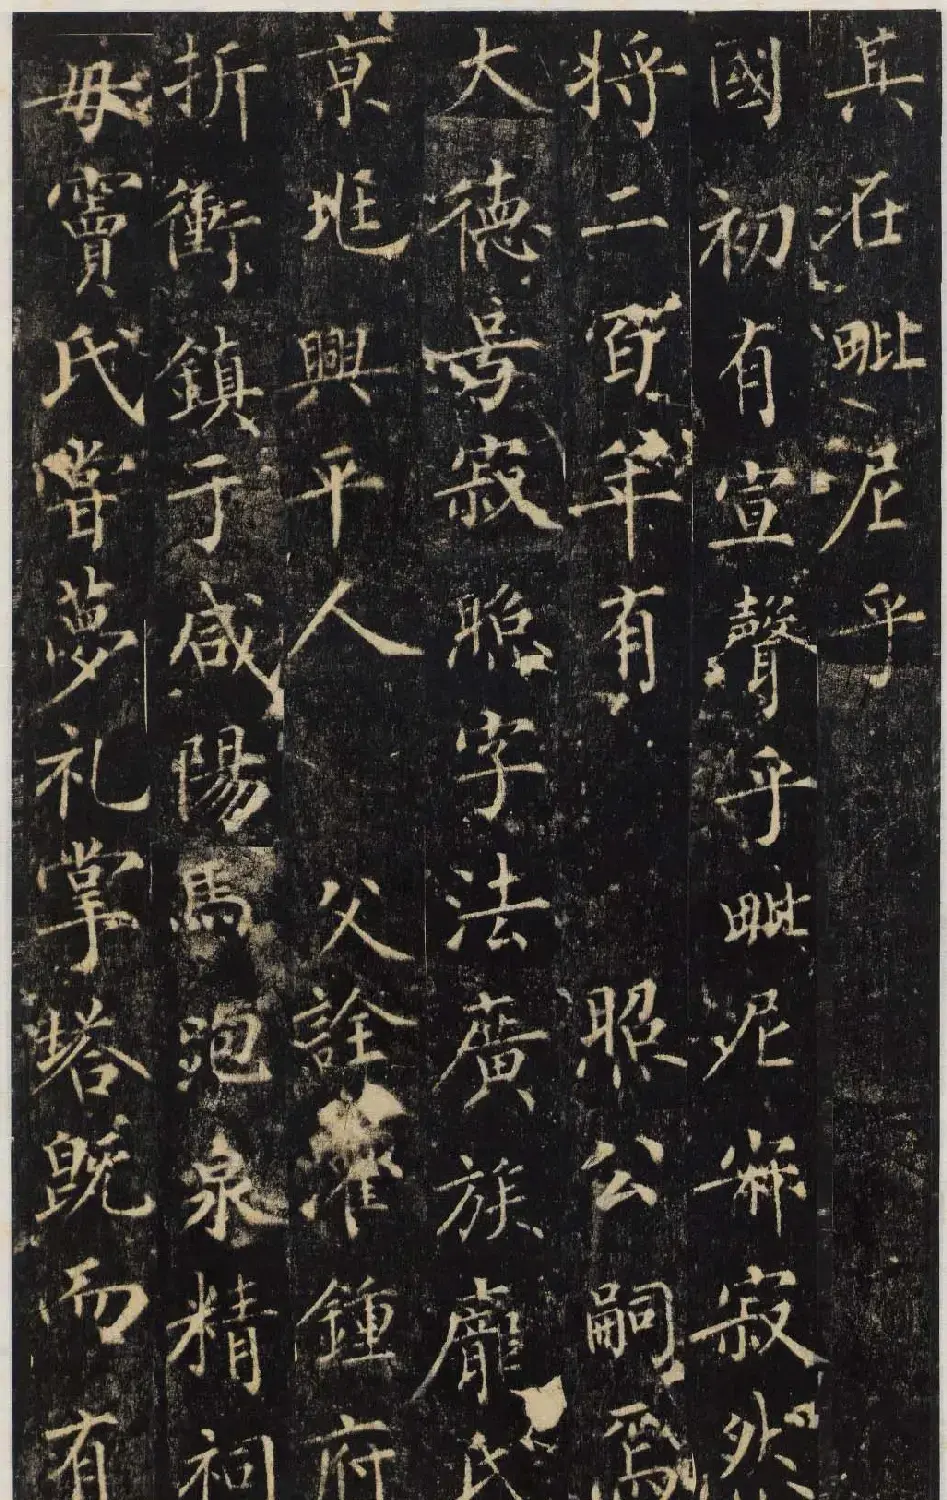 其在毗尼乎
國初有宣聲乎毗尼寂寂然
將二百年有 照公嗣焉
大德号寂照字法廣族龐氏
京兆興平人 父詮灌鍾府
折衝鎮于咸陽馬泡泉精祠
母竇氏嘗夢礼掌塔既而有